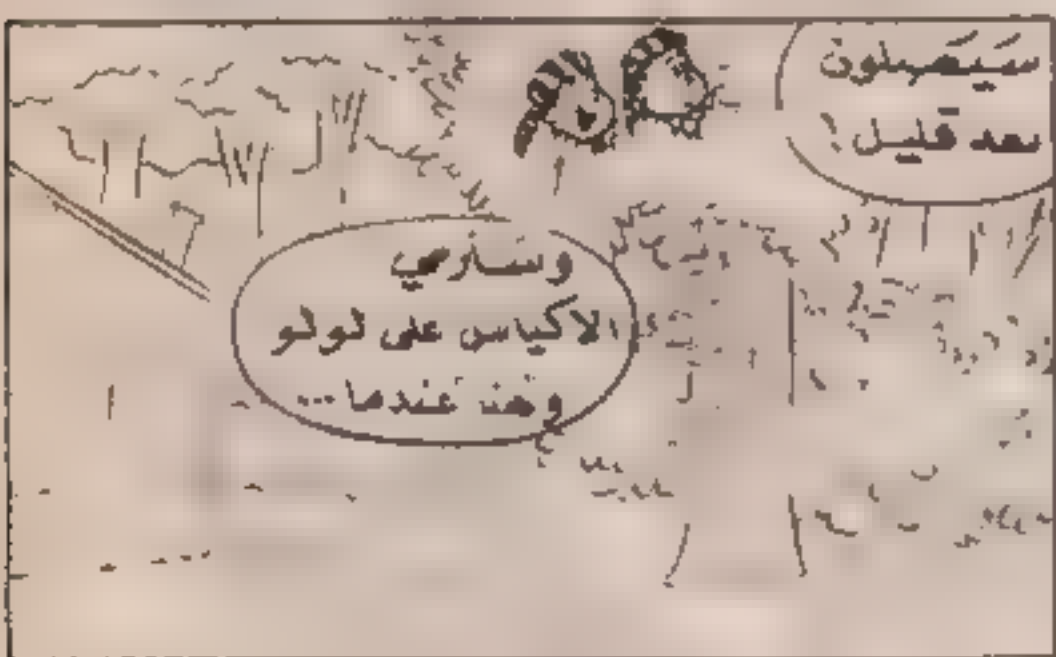 سَيَصِلون
بعد قليل!
وسأرمي
الأكياس على لولو
وهنا عندما...